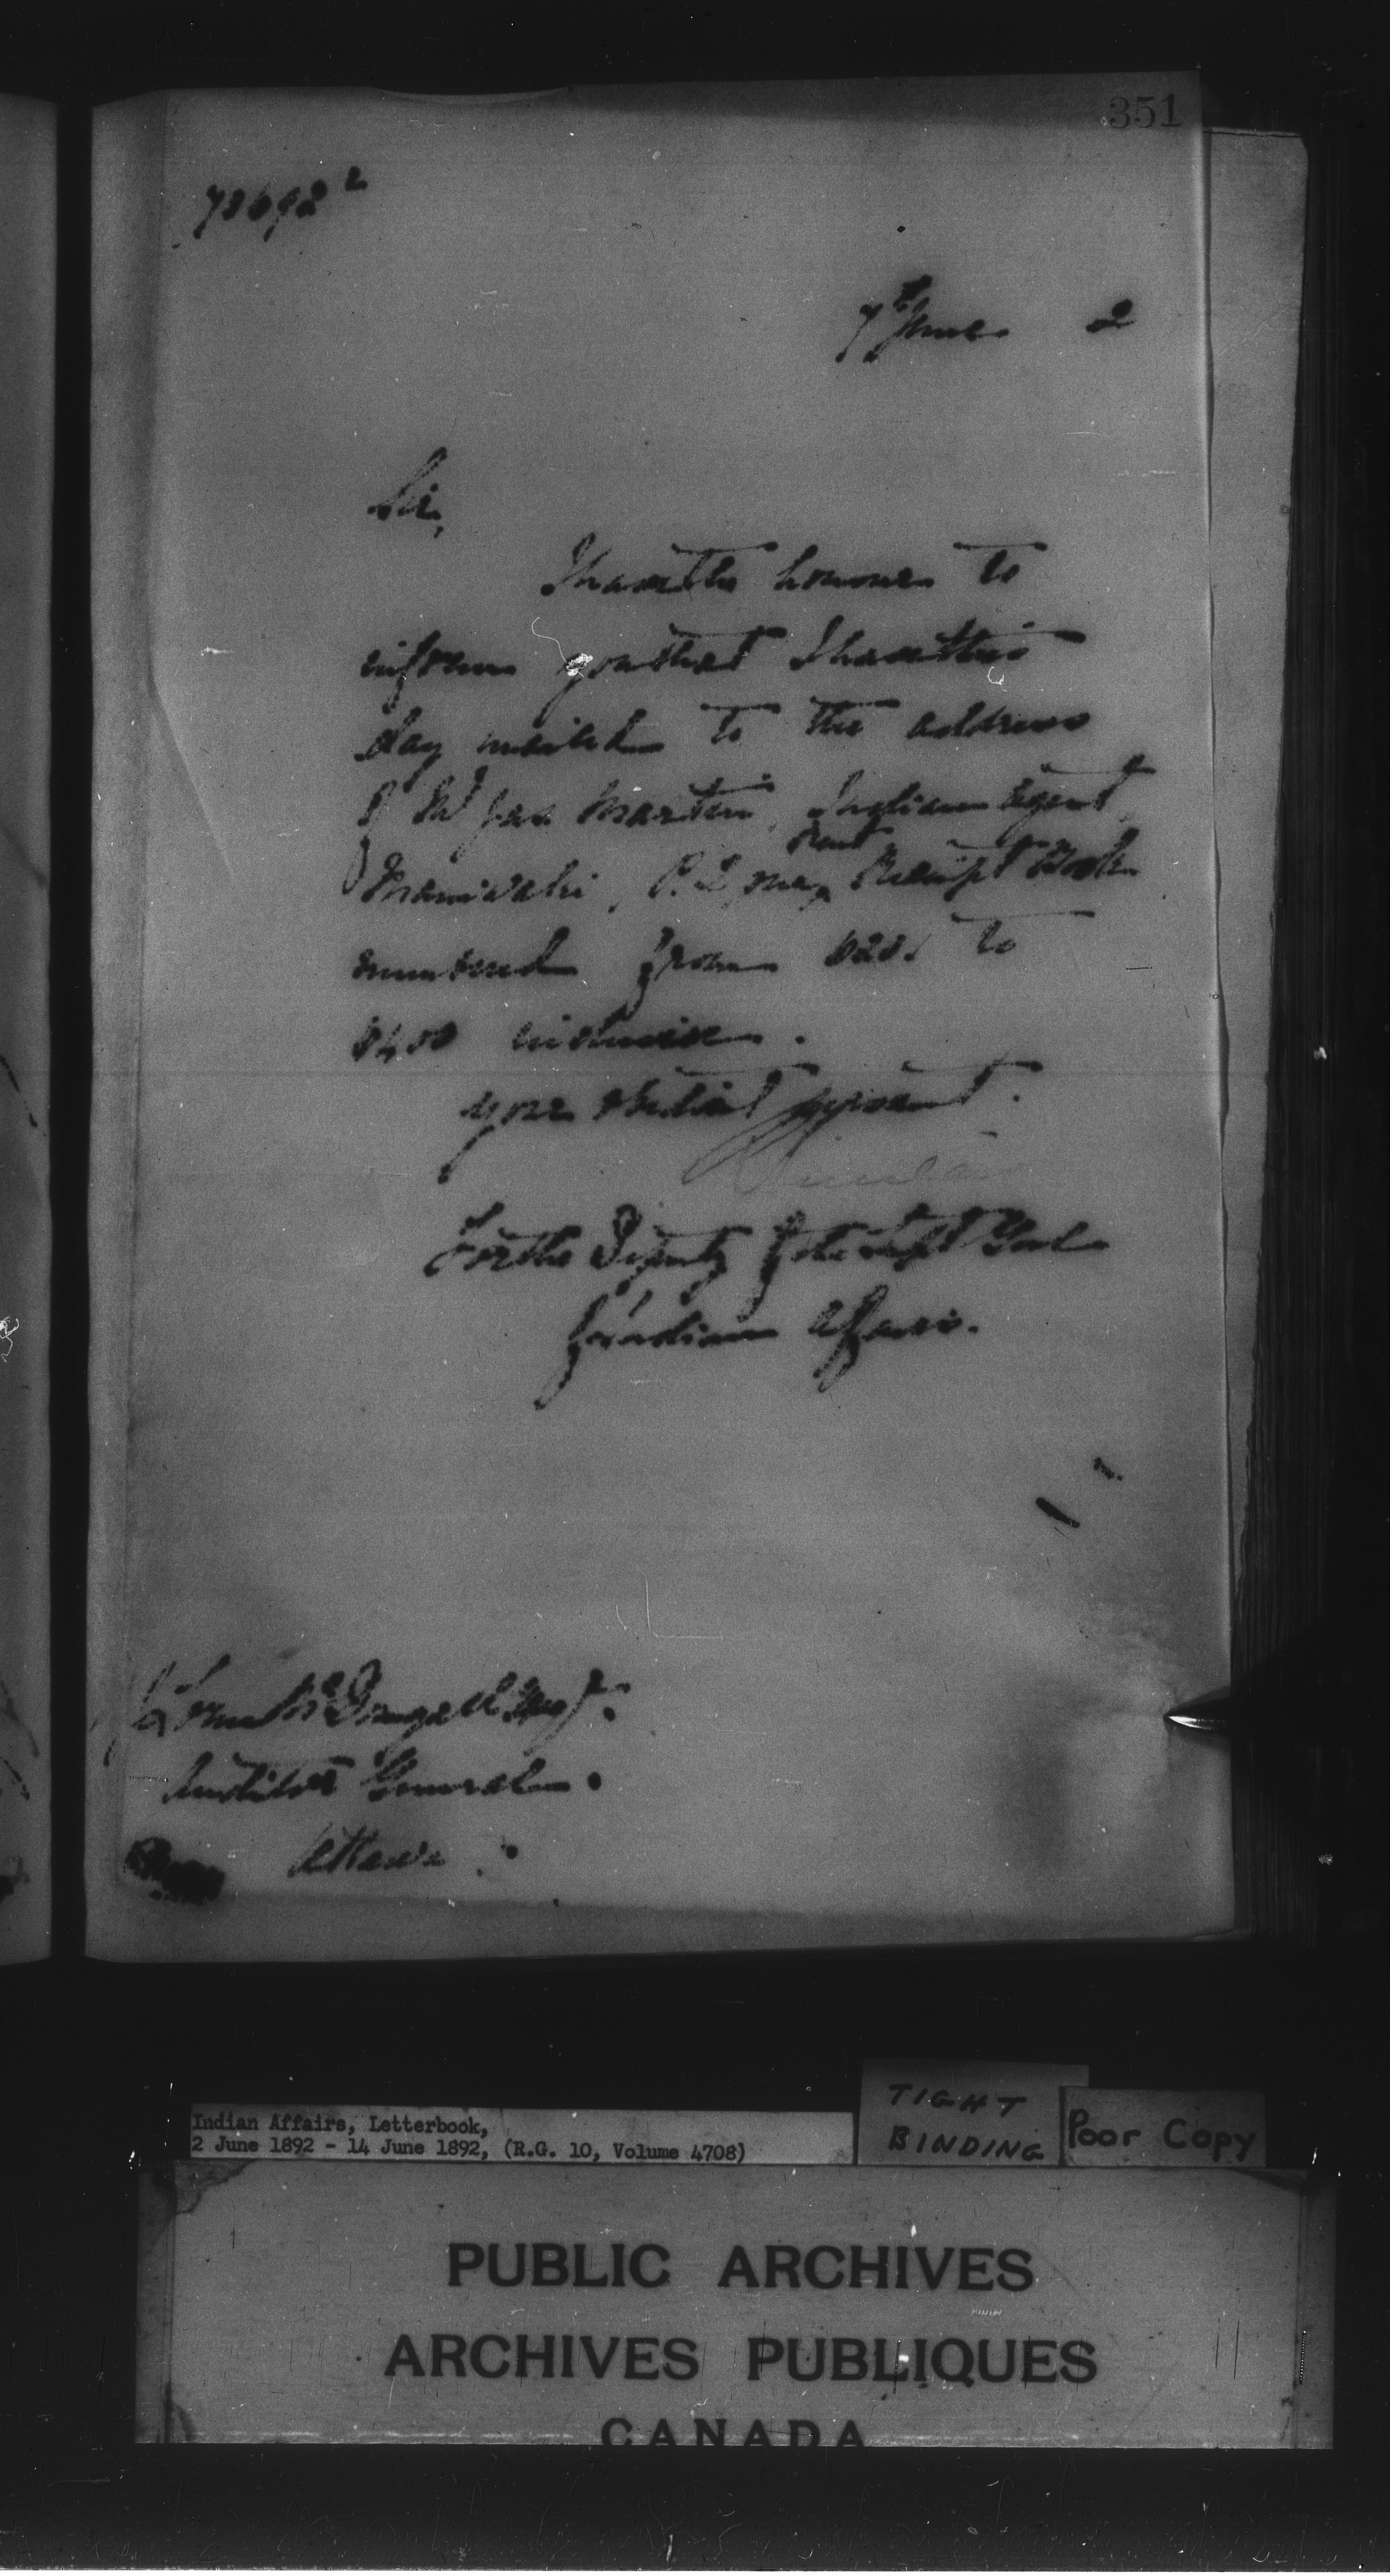 351
73692²
7th June 2
Sir,
I have the honour to
inform you that I have this
day mailed to the address
of Mr Jas Martin, Indian Agent,
Maniwaki, P.Q. one Rent Receipt Book
numbered from to
inclusive.
Your obedient servant.
For the Deputy of the Supt Genl
of Indian Affairs.
Lorne McDougall Esq.
Auditor General.
Ottawa.
Indian Affairs, Letterbook,
2 June 1892 - 14 June 1892, (R.G. 10, Volume 4708)
TIGHT
BINDING
Poor Copy
PUBLIC ARCHIVES
ARCHIVES PUBLIQUES
CANADA